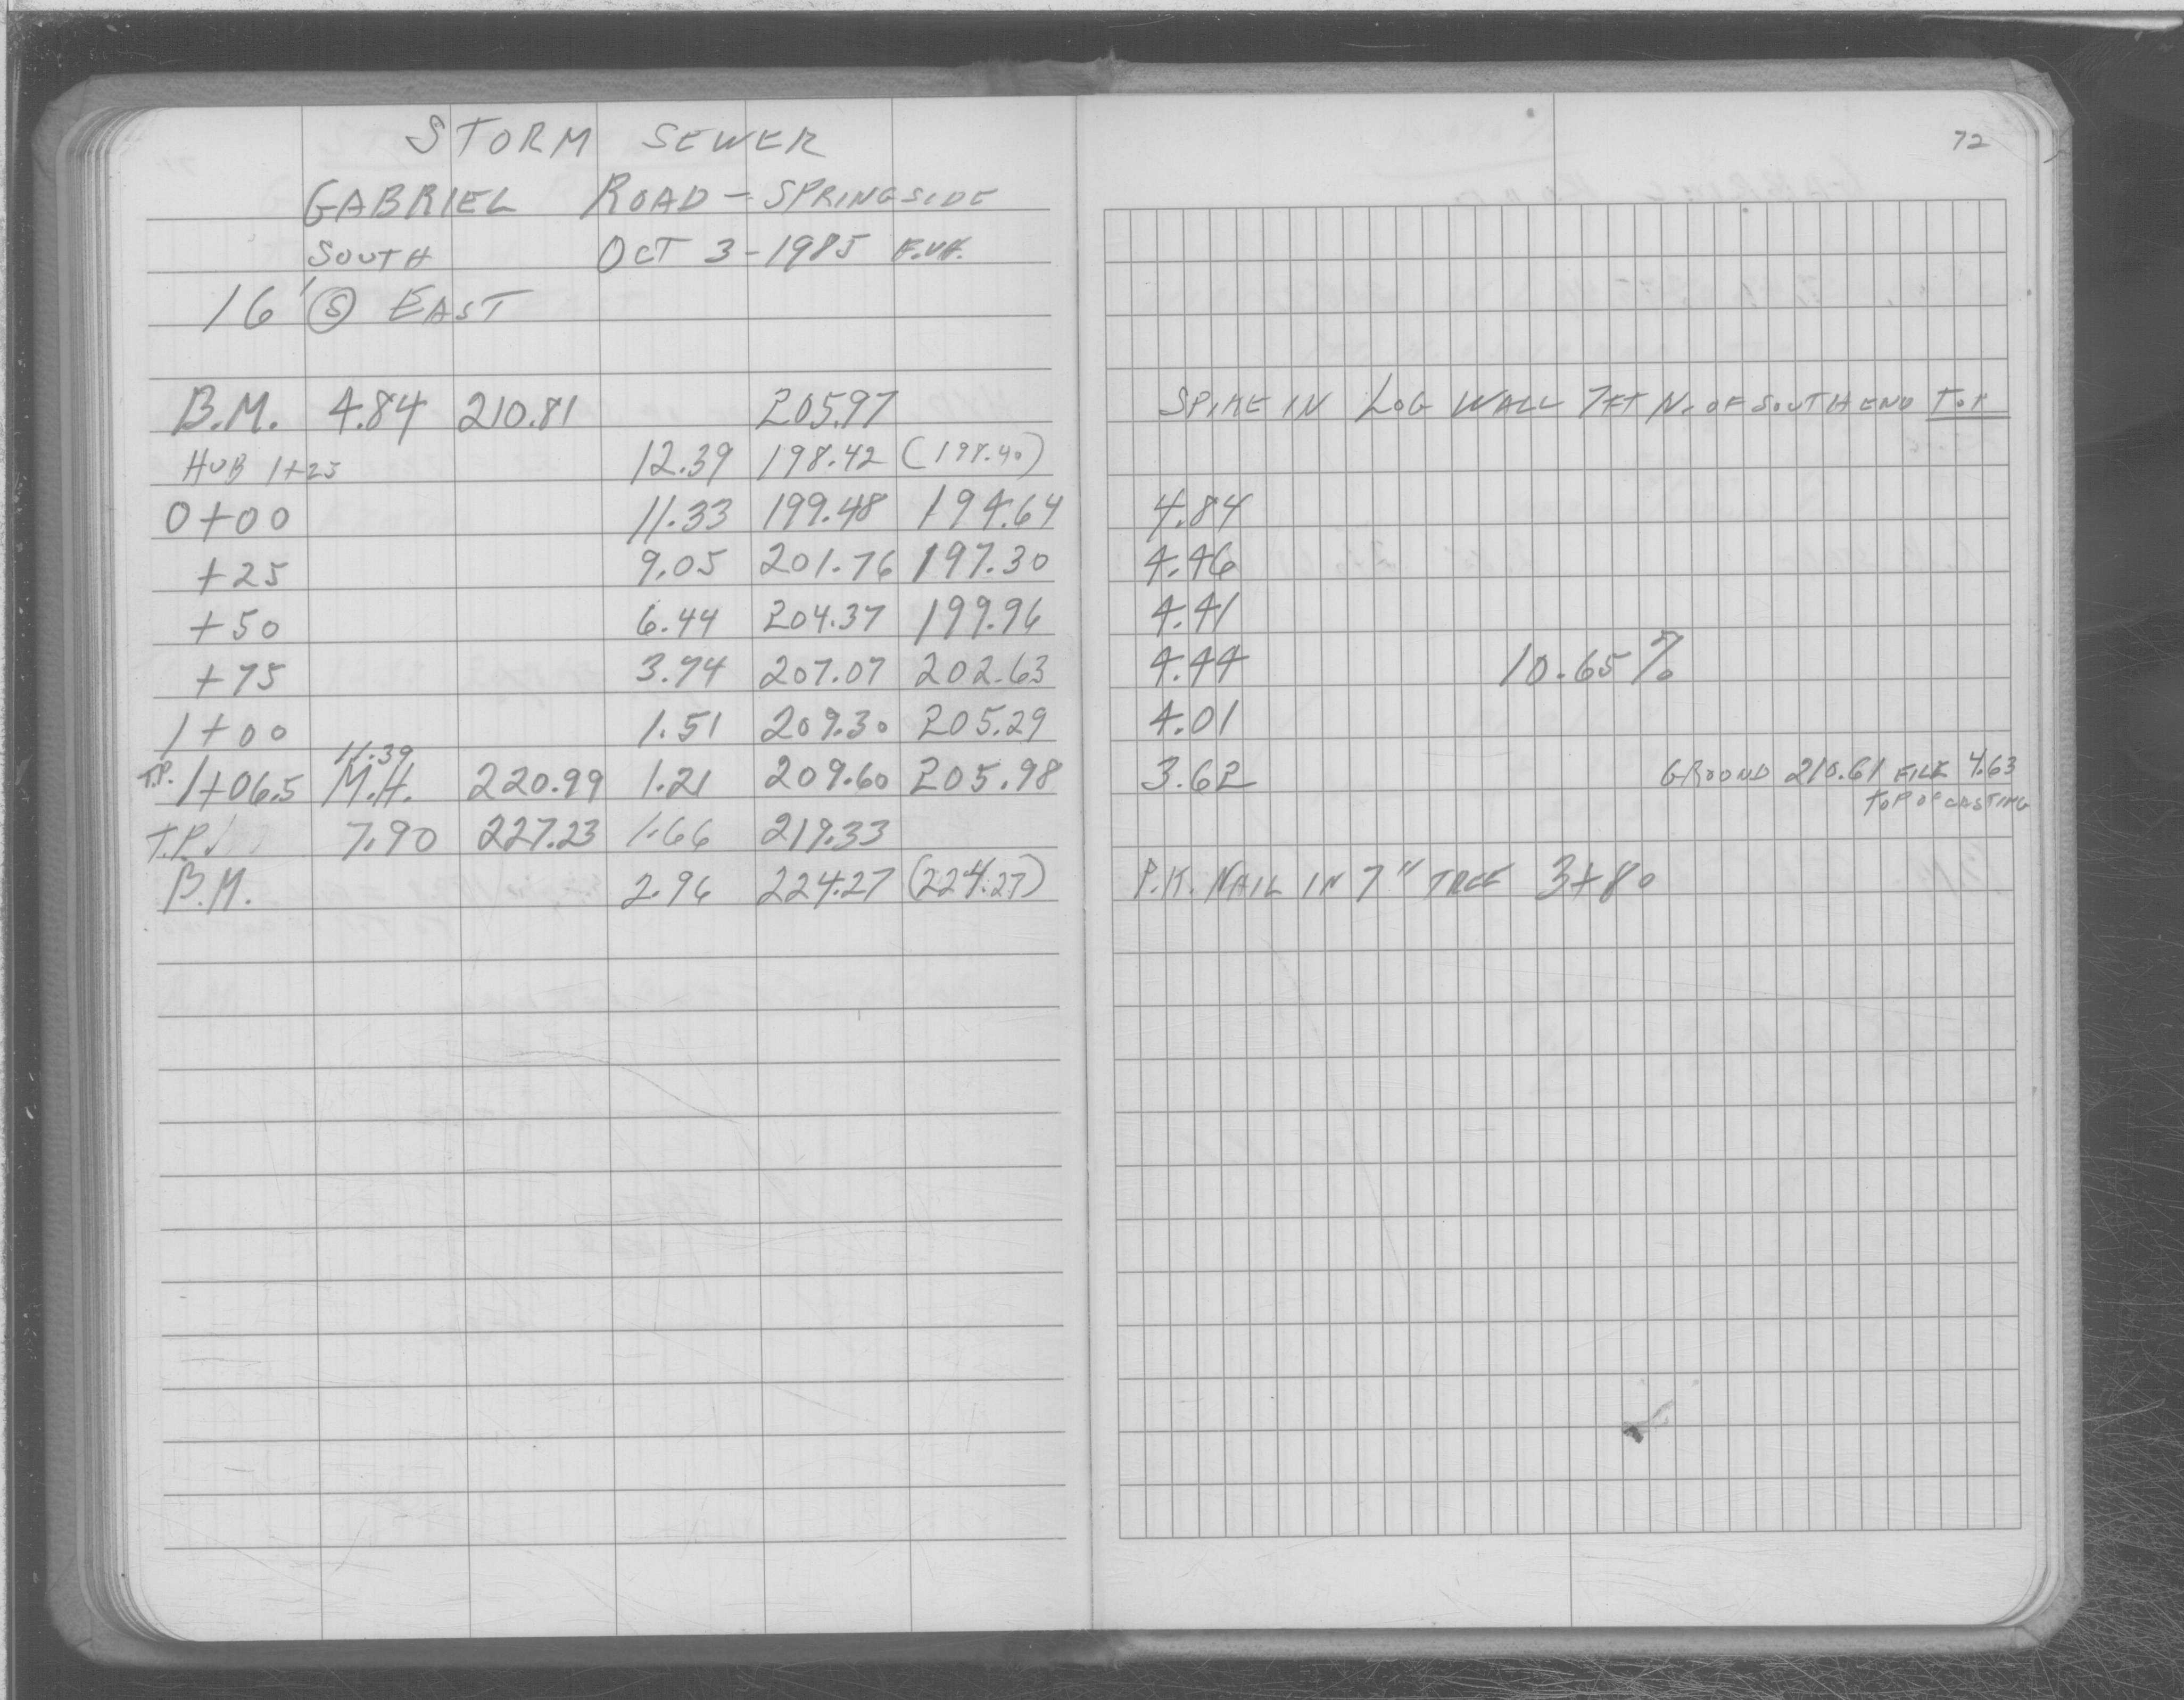 STORM SEWER
GABRIEL ROAD - SPRINGSIDE
SOUTH OCT 3 - 1985
16' Ⓢ EAST
B.M. 4.84 210.81 205.97
HUB 1+25 12.39 198.42 (198.40)
0+00 11.33 199.48 194.64
+25 9.05 201.76 197.30
+50 6.44 204.37 199.96
+75 3.74 207.07 202.63
1+00 1.51 209.30 205.29
11.39
T.P. 1+06.5 M.H. 220.99 1.21 209.60 205.98
T.P. 7.90 227.23 1.66 219.33
B.M. 2.96 224.27 (224.27)
72
SPIKE IN LOG WALL 7FT N. OF SOUTH END TOP
4.84
4.46
4.41
4.44 10.65%
4.01
3.62 GROUND 210.61 FILL 4.63
TOP OF CASTING
P.K. NAIL IN 7" TREE 3+80